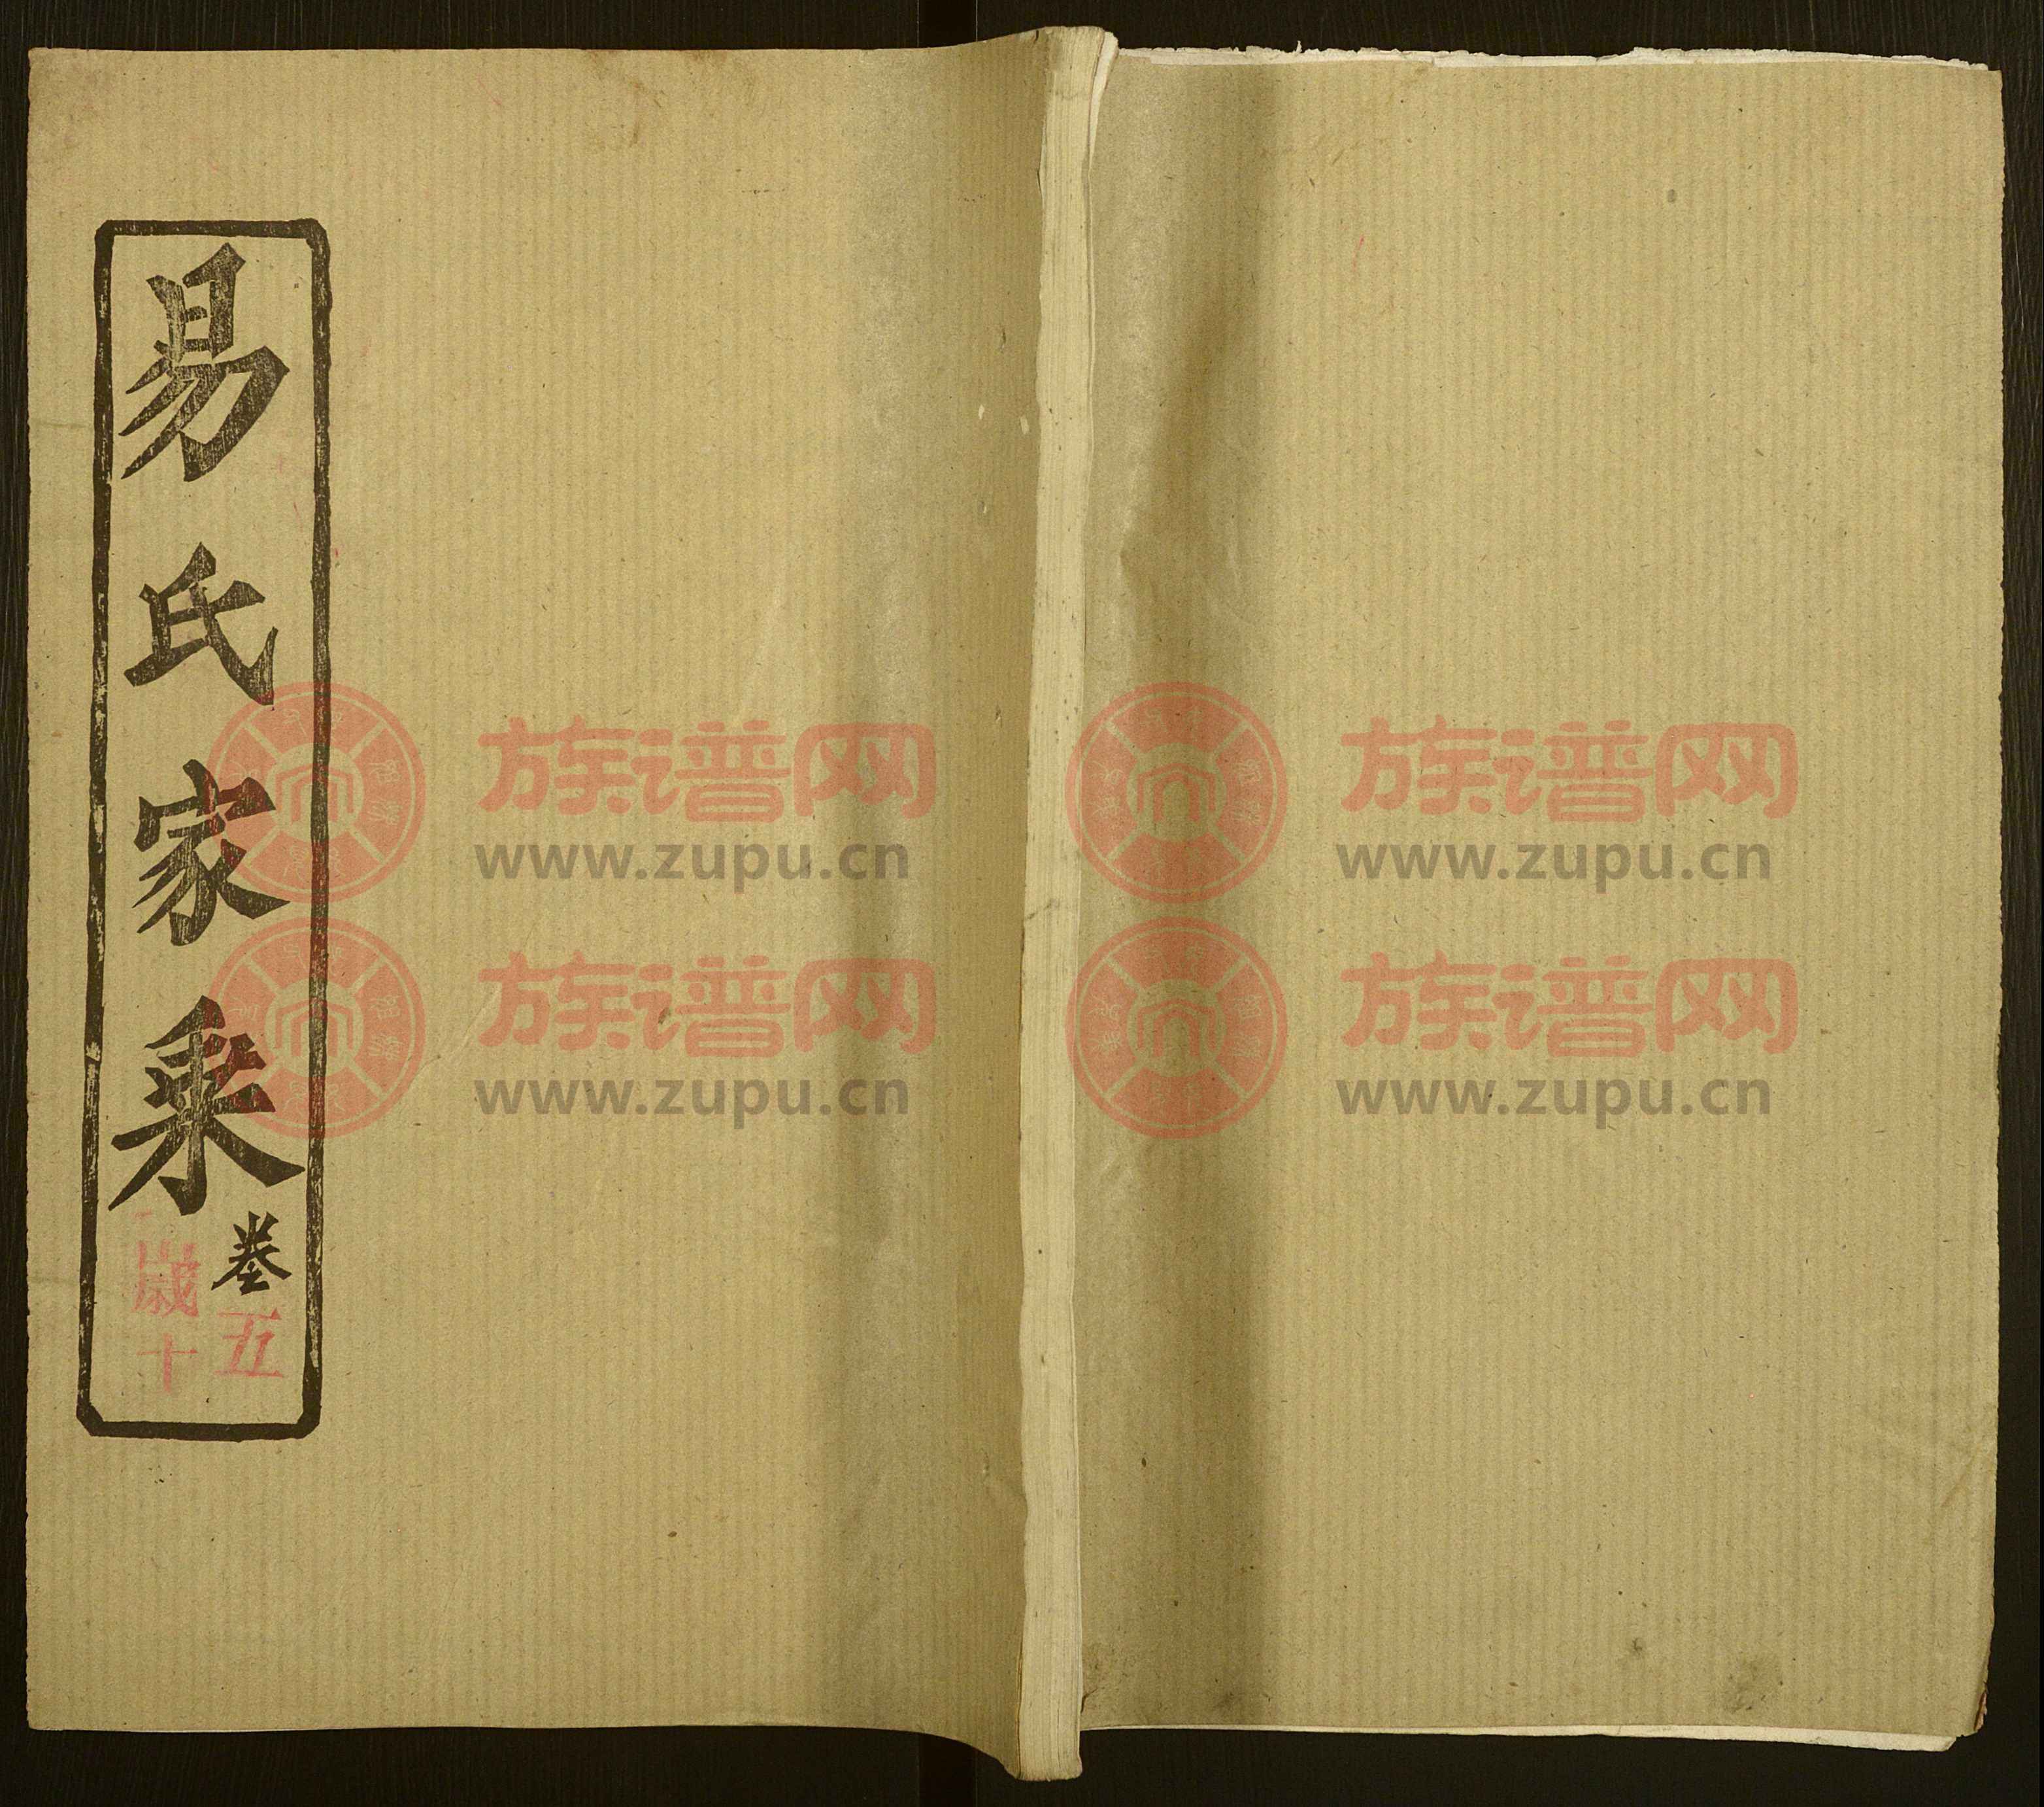 易氏家乘
卷五
歲十
族谱网
www.zupu.cn
族谱网
www.zupu.cn
族谱网
www.zupu.cn
族谱网
www.zupu.cn